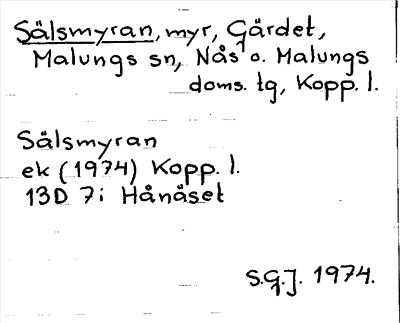 Sälsmyran, myr, Gärdet,
Malungs sn, Nås o. Malungs
doms. tg, Kopp. l.
Sälsmyran
ek (1974) Kopp. l.
13D 7i Hånäset
S.G.J. 1974.